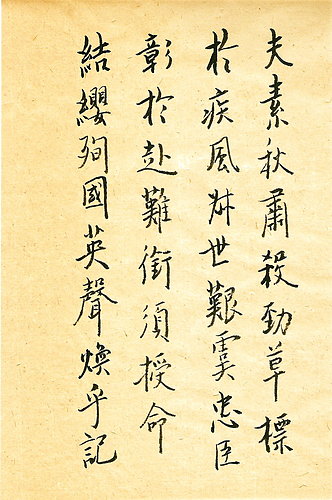 夫素秋肅殺勁草標
於疾風叔世艱虞忠臣
彰於赴難銜須授命
結纓殉國英聲煥乎記